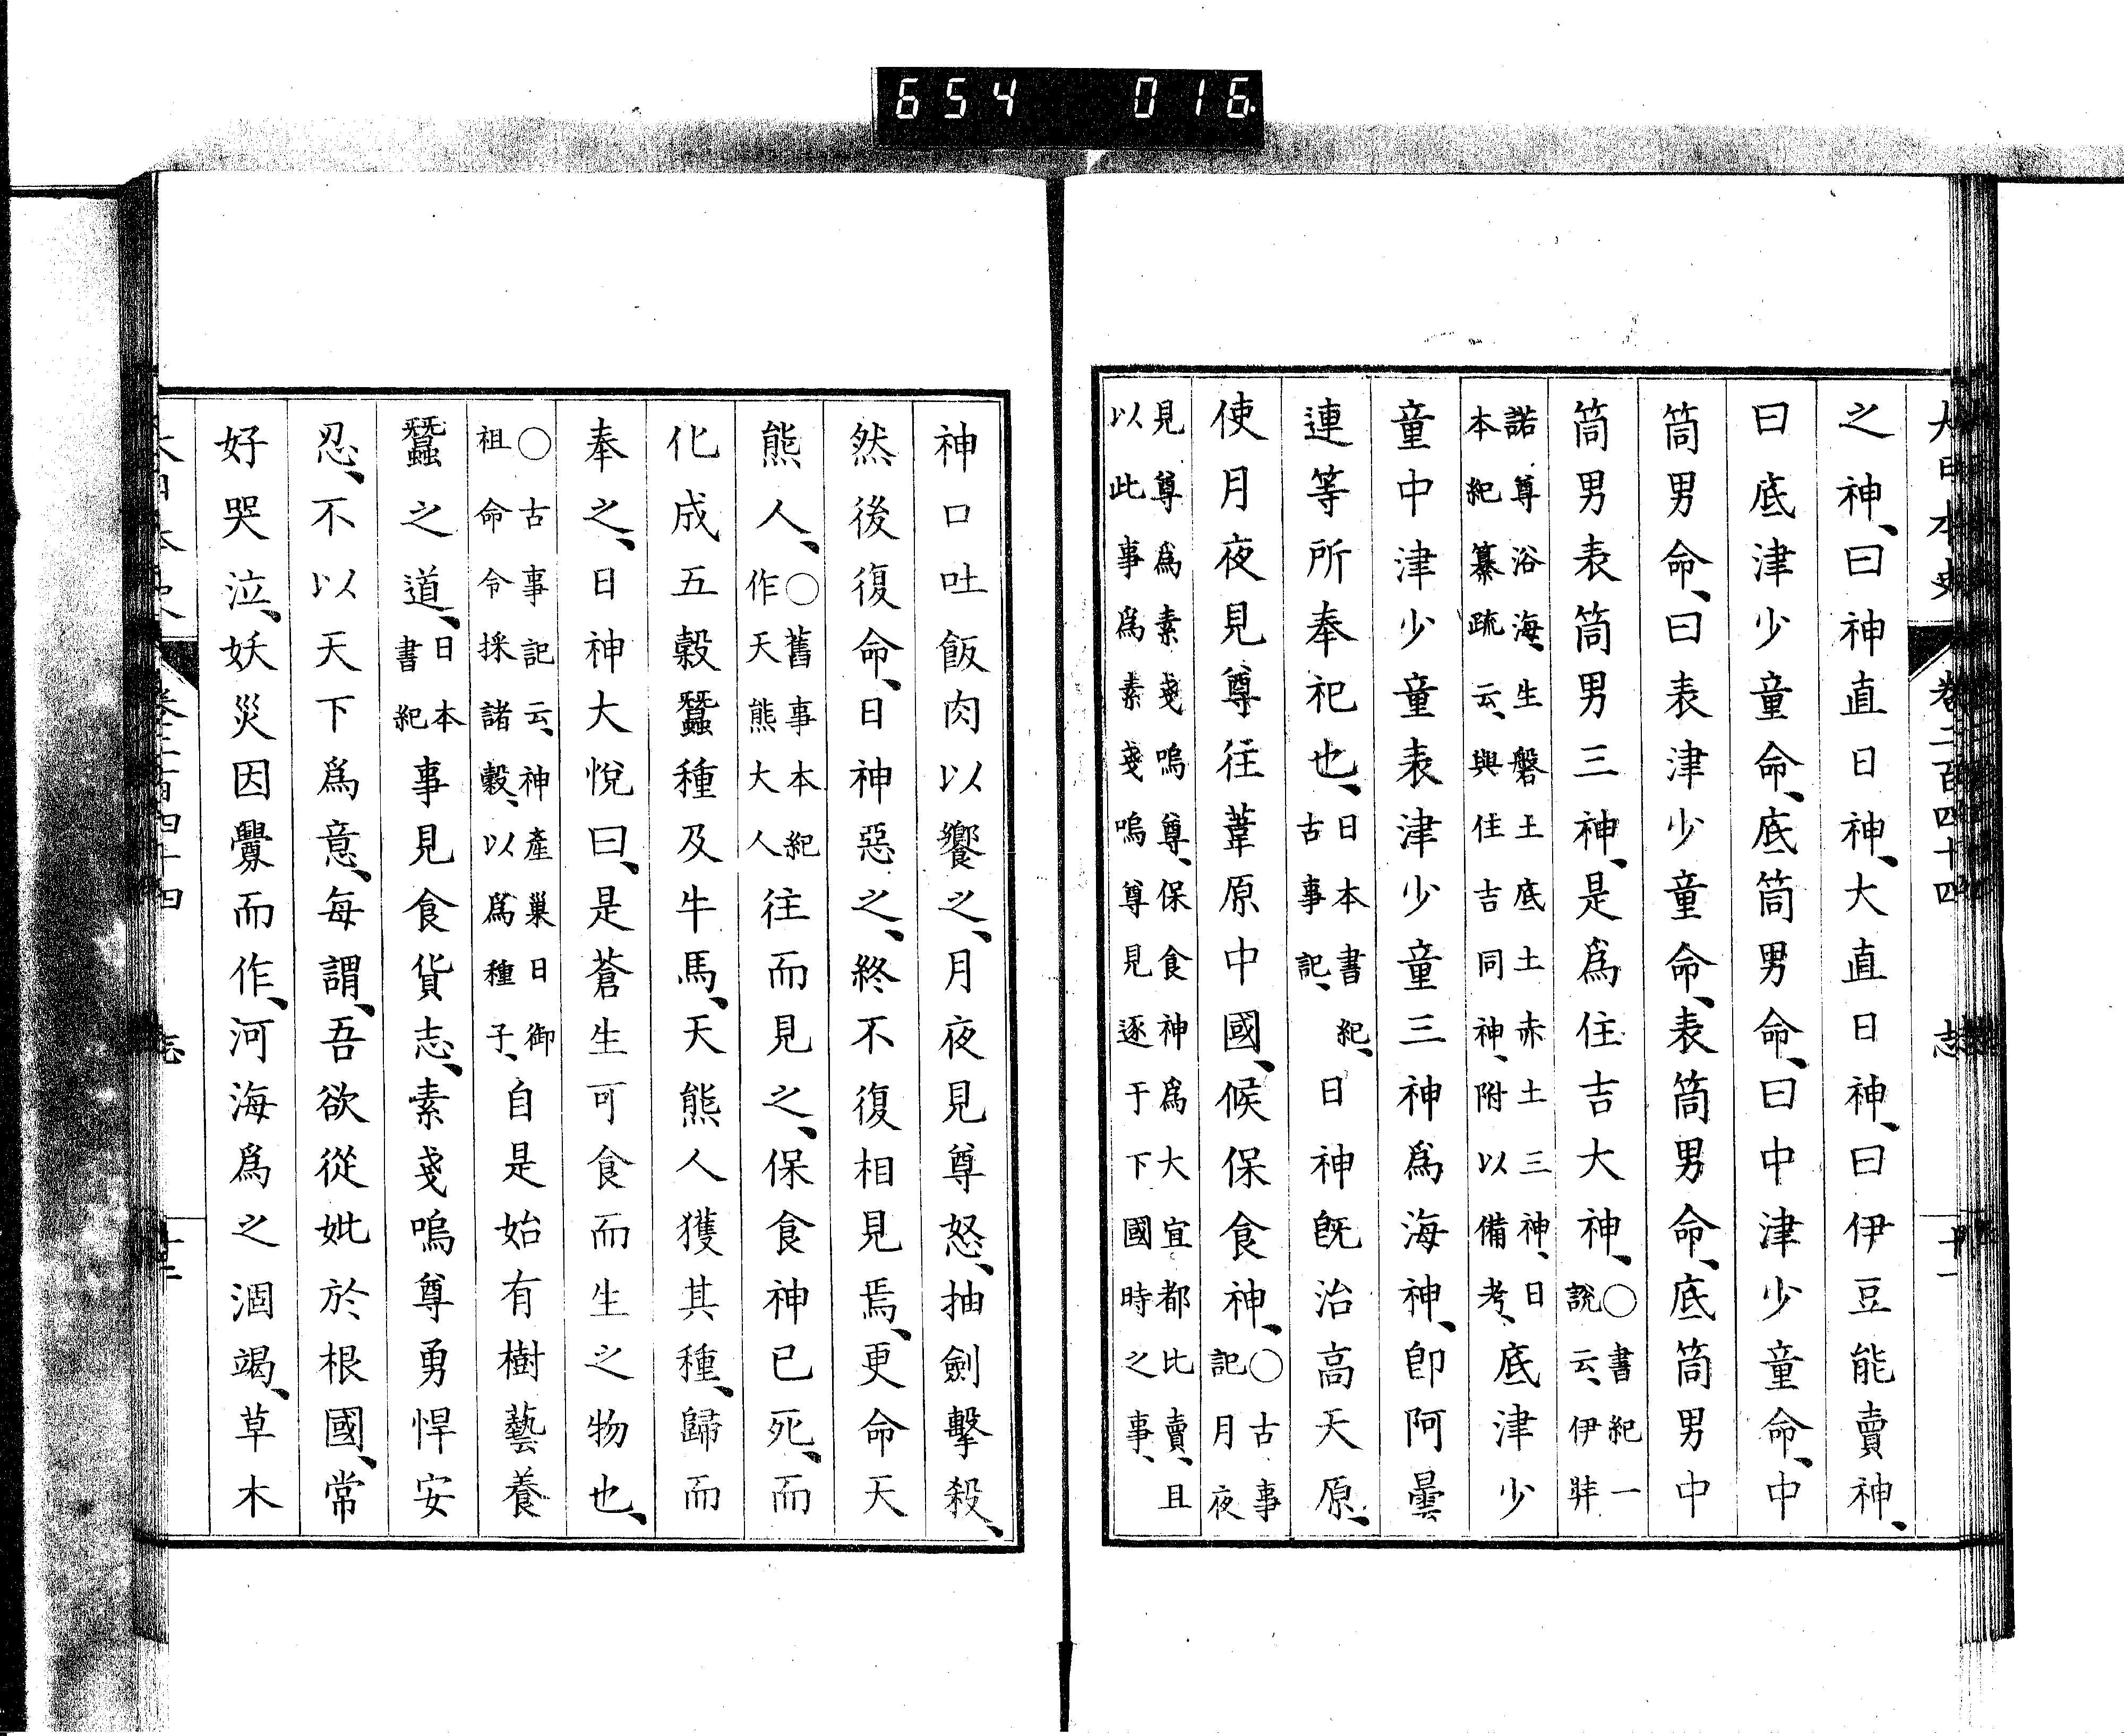 654 016.
大日本史 卷二百四十四 志 十一
之神、曰神直日神、大直日神、曰伊豆能賣神、
曰底津少童命、底筒男命、曰中津少童命、中
筒男命、曰表津少童命、表筒男命、底筒男中
筒男表筒男三神、是爲住吉大神、○書紀一說云、伊弉
諾尊浴海、生磐土底土赤土三神、日本紀纂疏云、與住吉同神、附以備考、底津少
童中津少童表津少童三神爲海神、卽阿曇
連等所奉祀也、日本書紀、古事記、日神既治高天原、
使月夜見尊往葦原中國、候保食神、○古事記月夜
見尊爲素戔嗚尊、保食神爲大宜都比賣、且以此事爲素戔嗚尊見逐于下國時之事、
神口吐飯肉以饗之、月夜見尊怒、抽劍擊殺、
然後復命、日神惡之、終不復相見焉、更命天
熊人、○舊事本紀作天熊大人往而見之、保食神已死、而
化成五穀蠶種及牛馬、天熊人獲其種、歸而
奉之、日神大悅曰、是蒼生可食而生之物也、
○古事記云、神產巢日御祖命令採諸穀、以爲種子、自是始有樹藝養
蠶之道、日本書紀事見食貨志、素戔嗚尊勇悍安
忍、不以天下爲意、每謂、吾欲從妣於根國、常
好哭泣、妖災因釁而作、河海爲之涸竭、草木
大日本史 卷二百四十四 志 十二